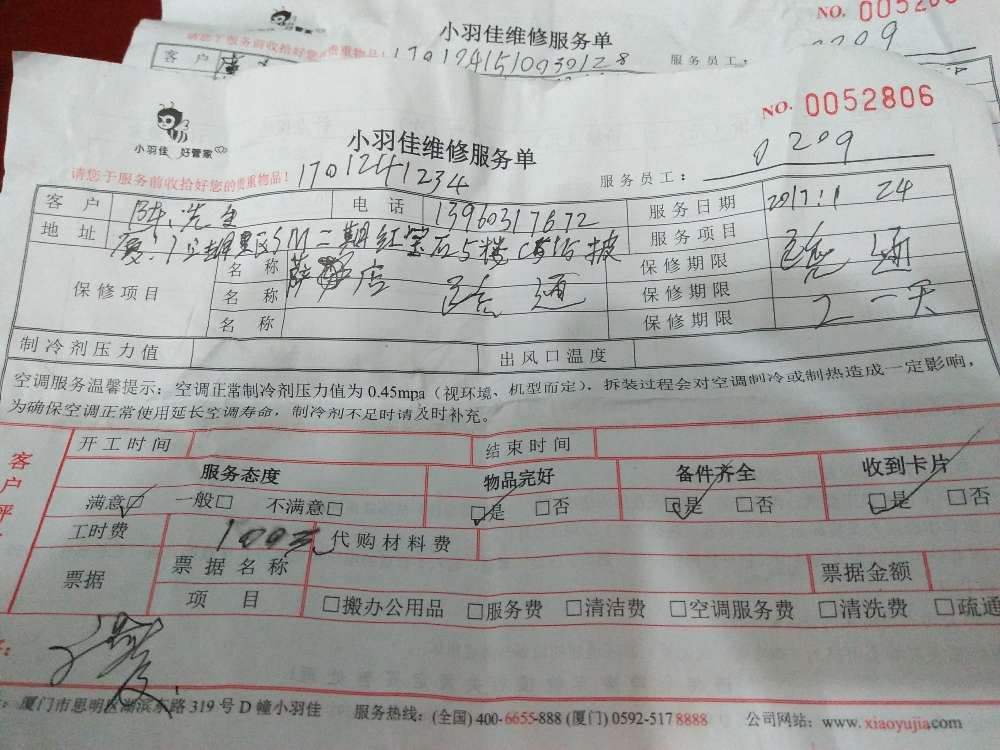 NO. 005280
小羽佳维修服务单
0209
请您于服务前收拾好您的贵重物品!
服务员工:
客 户
NO. 0052806
小羽佳 好管家
小羽佳维修服务单
0209
请您于服务前收拾好您的贵重物品! 1701241234 服务员工:
客 户 陈先生 电 话 13960317672 服务日期 2017.1 24
地 址 SM二期红宝石5楼 服务项目 疏通
保修项目 名 称 店 疏通 保修期限
名 称 保修期限
名 称 保修期限 一天
制冷剂压力值 出风口温度
空调服务温馨提示:空调正常制冷剂压力值为 0.45mpa(视环境、机型而定),拆装过程会对空调制冷或制热造成一定影响,
为确保空调正常使用延长空调寿命,制冷剂不足时请及时补充。
客户评 开工时间 结束时间
服务态度 物品完好 备件齐全 收到卡片
满意☑ 一般□ 不满意□ ☑是 □否 ☑是 □否 ☑是 □否
工时费 100元 代购材料费
票据 票据名称 票据金额
项 目 □搬办公用品 □服务费 □清洁费 □空调服务费 □清洗费 □疏通
厦门市思明区湖滨东路 319 号 D 幢小羽佳 服务热线:(全国) 400-6655-888 (厦门) 0592-517 8888 公司网站:www.xiaoyujia.com